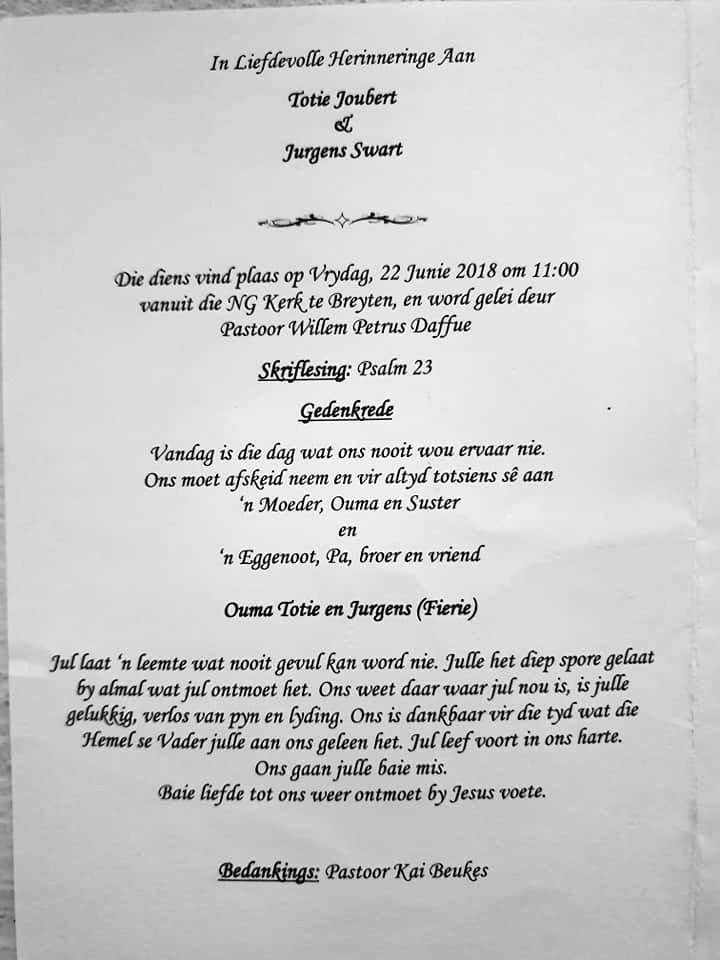 In Liefdevolle Herinneringe Aan
Totie Joubert
&
Jurgens Swart
Die diens vind plaas op Vrydag, 22 Junie 2018 om 11:00
vanuit die NG Kerk te Breyten, en word gelei deur
Pastoor Willem Petrus Daffue
Skriflesing: Psalm 23
Gedenkrede
Vandag is die dag wat ons nooit wou ervaar nie.
Ons moet afskeid neem en vir altyd totsiens sê aan
‘n Moeder, Ouma en Suster
en
‘n Eggenoot, Pa, broer en vriend
Ouma Totie en Jurgens (Fierie)
Jul laat ‘n leemte wat nooit gevul kan word nie. Julle het diep spore gelaat
by almal wat jul ontmoet het. Ons weet daar waar jul nou is, is julle
gelukkig, verlos van pyn en lyding. Ons is dankbaar vir die tyd wat die
Hemel se Vader julle aan ons geleen het. Jul leef voort in ons harte.
Ons gaan julle baie mis.
Baie liefde tot ons weer ontmoet by Jesus voete.
Bedankings: Pastoor Kai Beukes